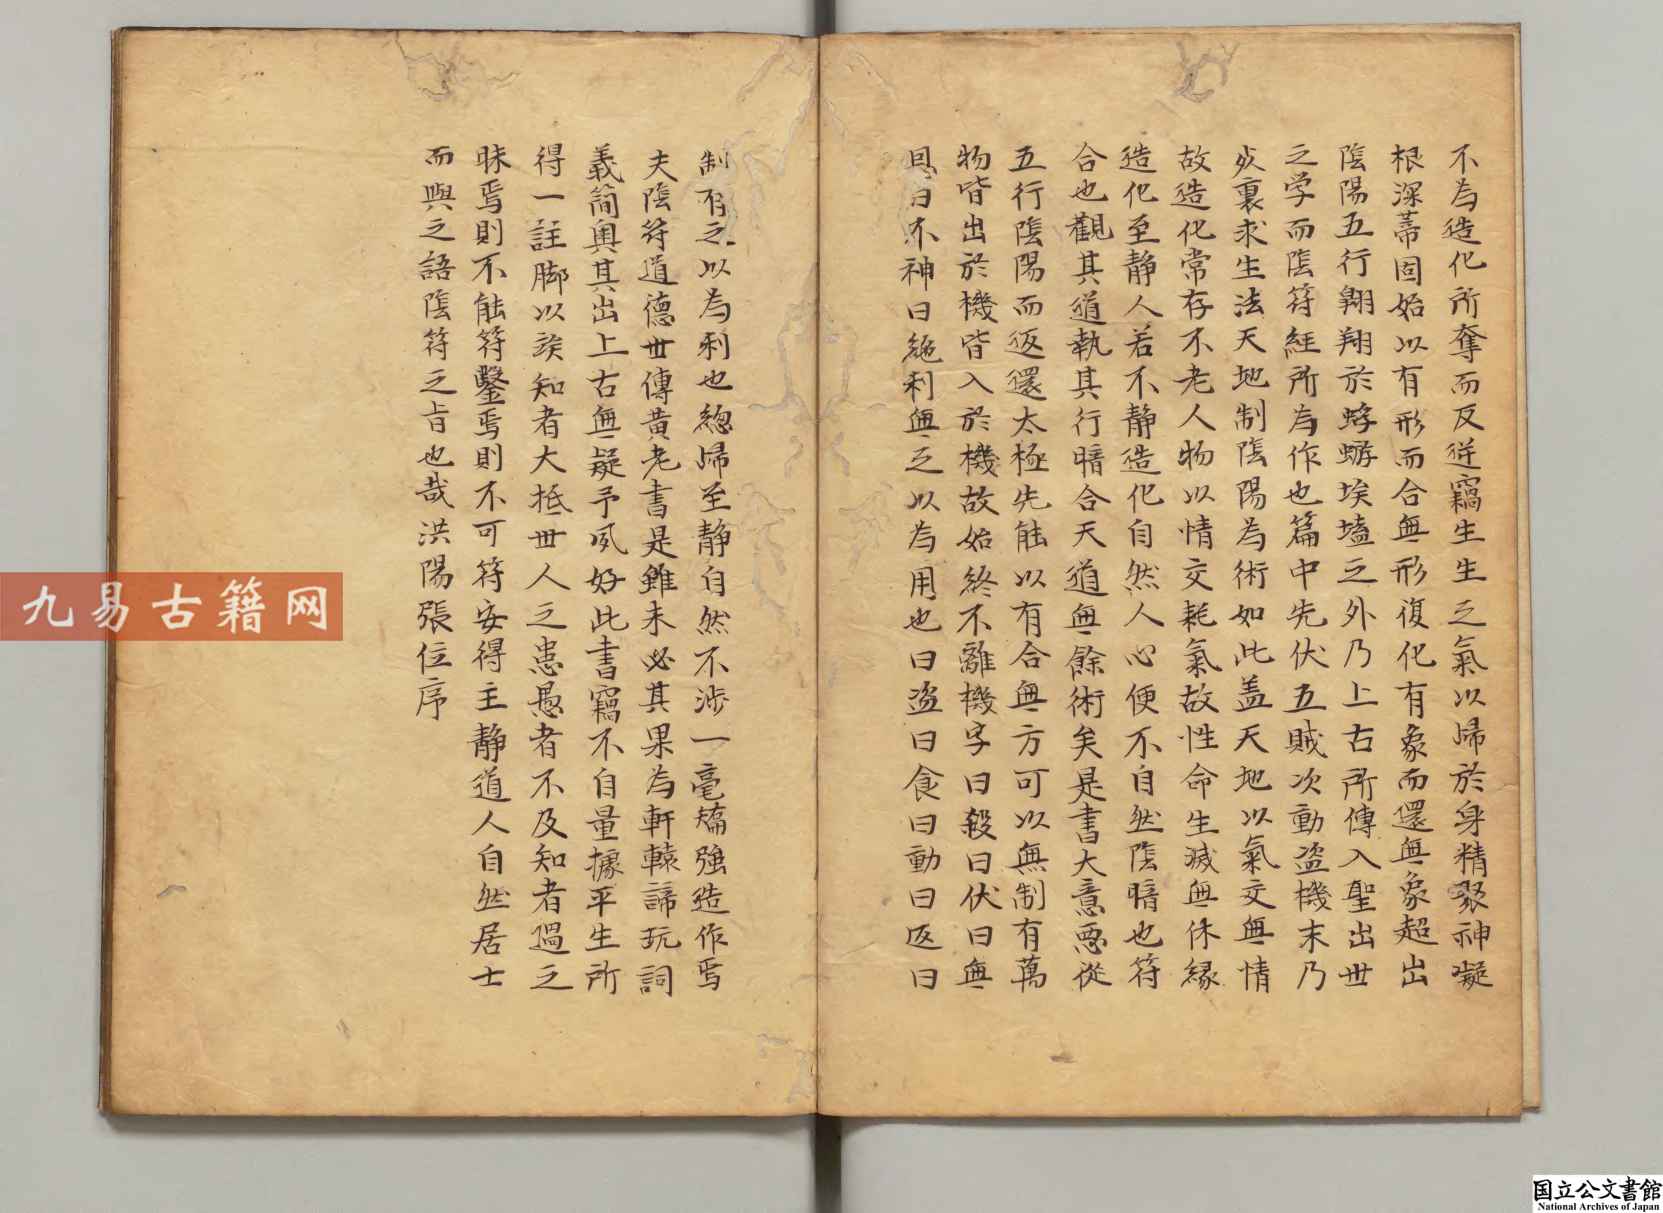 不為造化所奪而反逆竊生生之氣以歸於身精聚神凝
根深蒂固始以有形而合無形復化有象而還無象超出
陰陽五行翱翔於蜉蝣埃壒之外乃上古所傳入聖出世
之学而陰符經所為作也篇中先伏五賊次動盜機末乃
歺裏求生法天地制陰陽為術如此盖天地以氣交無情
故造化常存不老人物以情交耗氣故性命生滅無休縁
造化至静人若不静造化自然人心便不自然陰暗也符
合也觀其道執其行暗合天道無餘術矣是書大意要從
五行陰陽而返還太極先能以有合無方可以無制有萬
物皆出於機皆入於機故始終不離機字曰殺曰伏曰無
恩曰不神曰絶利無之以為用也曰盗曰食曰動曰返曰
制有之以為利也總歸至静自然不涉一毫矯強造作焉
夫陰符道德世傳黄老書是雖未必其果為軒轅諦玩詞
義簡奥其出上古無疑予夙好此書竊不自量據平生所
得一註脚以俟知者大抵世人之患愚者不及知者過之
昧焉則不能符鑿焉則不可符安得主静道人自然居士
而與之語陰符之旨也哉洪陽張位序
九易古籍网
国立公文書館
National Archives of Japan